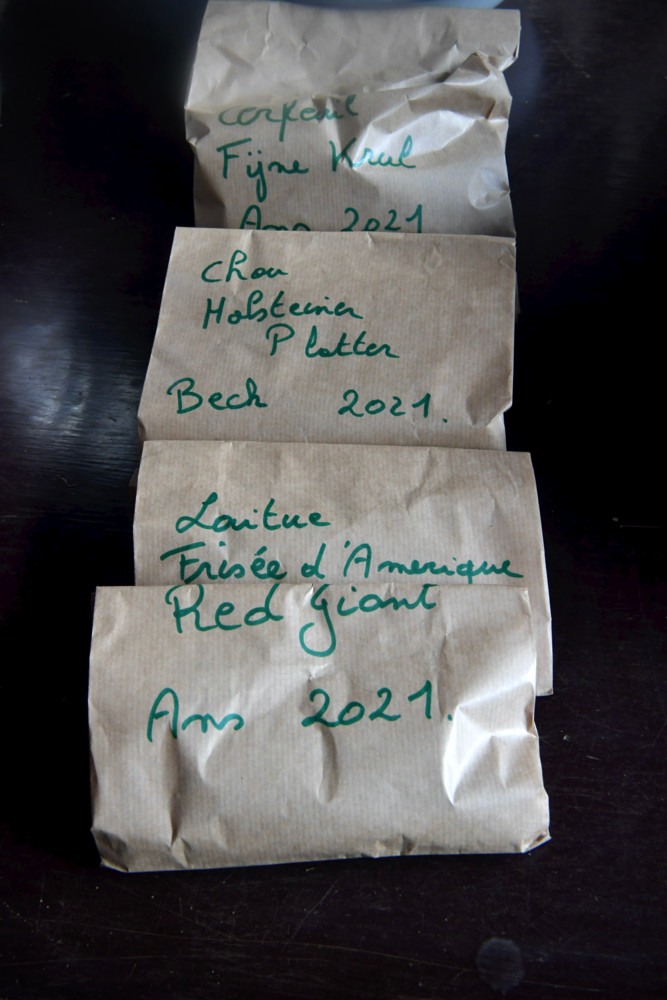 Cerfeuil
Fijne Krul
Ans 2021
Chou
Holsteiner
Platter
Bech 2021.
Laitue
Frisée d'Amerique
Red Giant
Ans 2021.